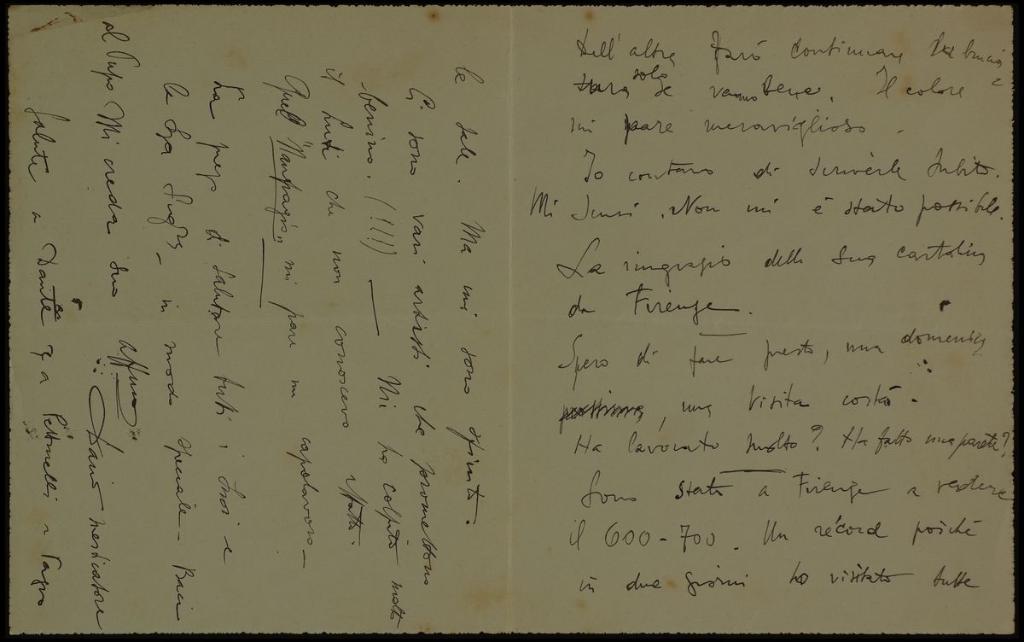 dell'altra farò continuare la brucia
tura sola se vanno bene. Il colore è
mi pare meraviglioso.
Io contavo di scriverle subito.
Mi scusi. Non mi è stato possibile.
La ringrazio della sua cartolina
da Firenze.
Spero di fare presto, una domenica
prossima, una visita costà.
Ha lavorato molto? Ha fatto una parete?
Sono stato a Firenze a vedere
il 600-700. Un récord poiché
in due giorni ho visitato tutte
le sale. Ma mi sono sfinito.
Ci sono vari artisti che promettono
benino. (!!!) — Mi ha colpito molto
il che non conoscevo affatto.
Quel "Naufragio" mi pare un capolavoro —
La prego di salutare tutti i suoi e
la Sua — in modo speciale — Baci
al Pupo Mi creda suo affmo
Dario mesticatore
Salute a Dante e a Pettinelli